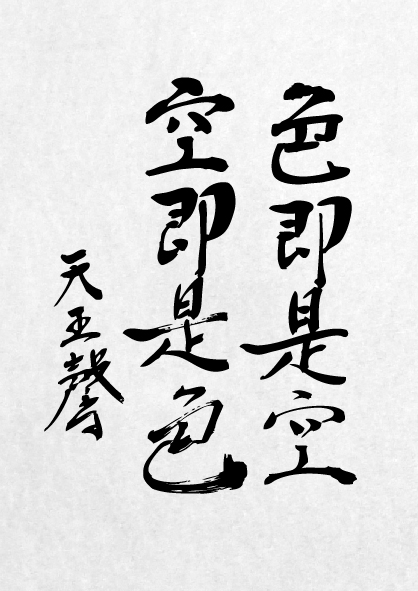 色即是空
空即是色
天王聲